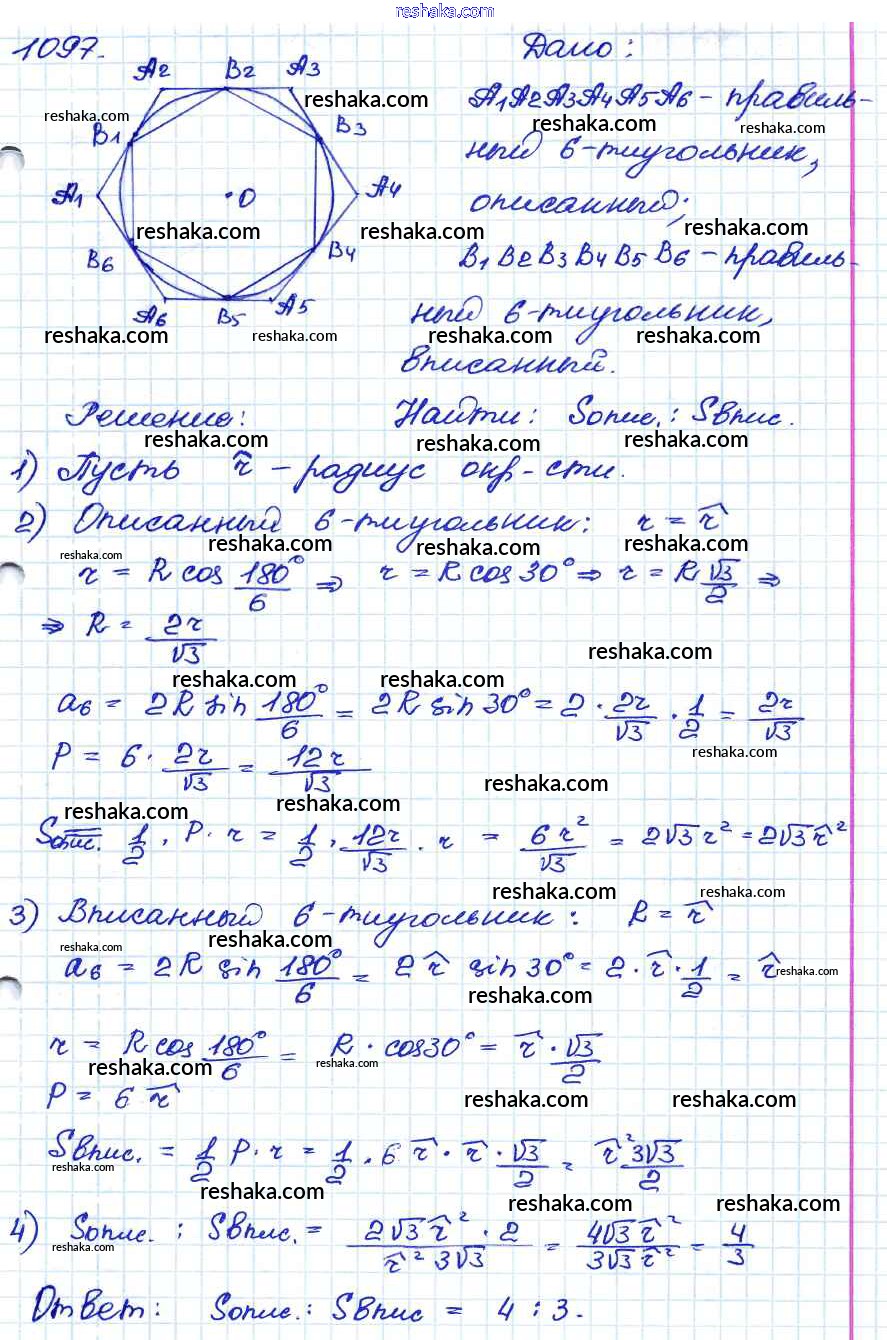 reshaka.com
1097.
Дано:
A2 B2 A3
B1 B3
A1 O A4
B6 B4
A6 B5 A5
A1A2A3A4A5A6 – правиль-
ный 6-тиугольник,
описанный;
B1B2B3B4B5B6 – правиль-
ный 6-тиугольник,
вписанный.
Решение:
Найти: Sопис. : Sвпис.
1) Пусть r̂ – радиус окр-сти.
2) Описанный 6-тиугольник: r = r̂
r = R cos 180°/6 ⇒ r = R cos 30° ⇒ r = R √3/2 ⇒
⇒ R = 2r/√3
a6 = 2R sin 180°/6 = 2R sin 30° = 2 · 2r/√3 · 1/2 = 2r/√3
P = 6 · 2r/√3 = 12r/√3
Sопис. = 1/2 · P · r = 1/2 · 12r/√3 · r = 6r²/√3 = 2√3 r² = 2√3 r̂²
3) Вписанный 6-тиугольник: R = r̂
a6 = 2R sin 180°/6 = 2 r̂ sin 30° = 2 · r̂ · 1/2 = r̂
r = R cos 180°/6 = R · cos 30° = r̂ · √3/2
P = 6 r̂
Sвпис. = 1/2 P · r = 1/2 · 6 r̂ · r̂ · √3/2 = r̂² 3√3/2
4) Sопис. : Sвпис. = 2√3 r̂² · 2/r̂² 3√3 = 4√3 r̂²/3√3 r̂² = 4/3
Ответ: Sопис. : Sвпис = 4 : 3.